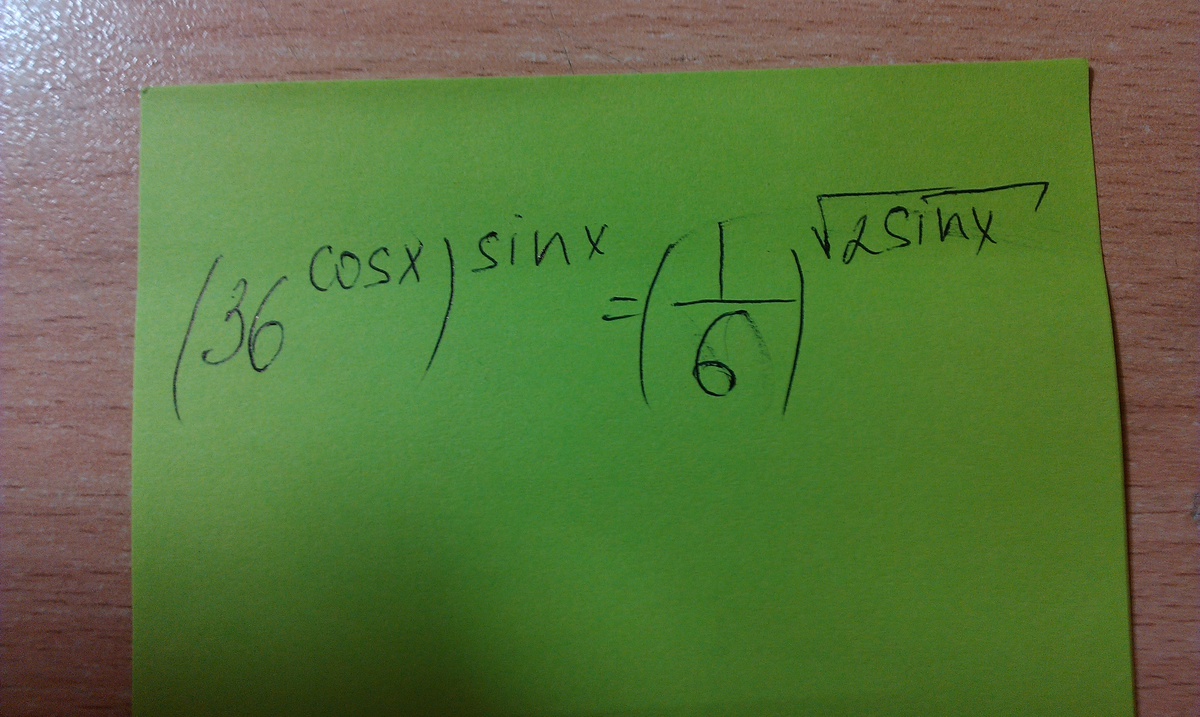 (36^cosx)^sinx = (1/6)^√(2sinx)